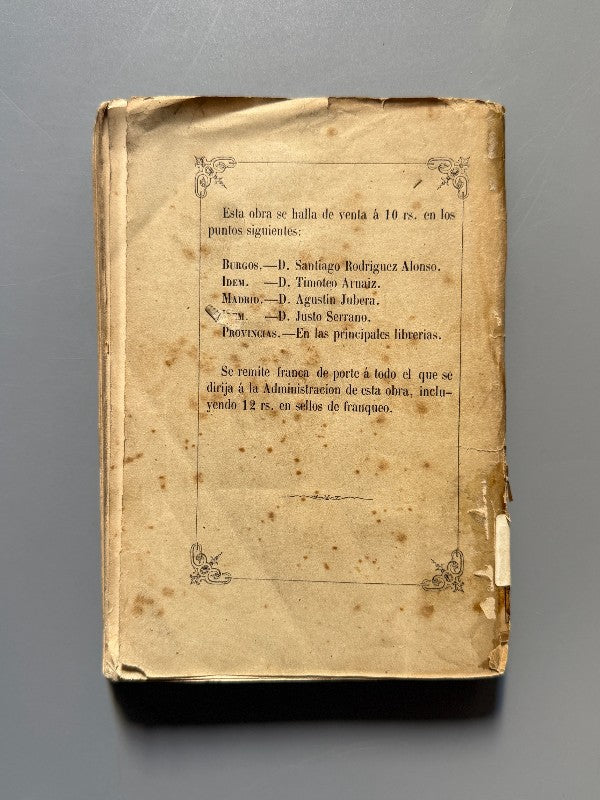 Esta obra se halla de venta á 10 rs. en los
puntos siguientes:
BURGOS.—D. Santiago Rodriguez Alonso.
IDEM. —D. Timoteo Arnaiz.
MADRID.—D. Agustin Jubera.
IDEM. —D. Justo Serrano.
PROVINCIAS.—En las principales librerias.
Se remite franca de porte á todo el que se
dirija á la Administracion de esta obra, inclu-
yendo 12 rs. en sellos de franqueo.